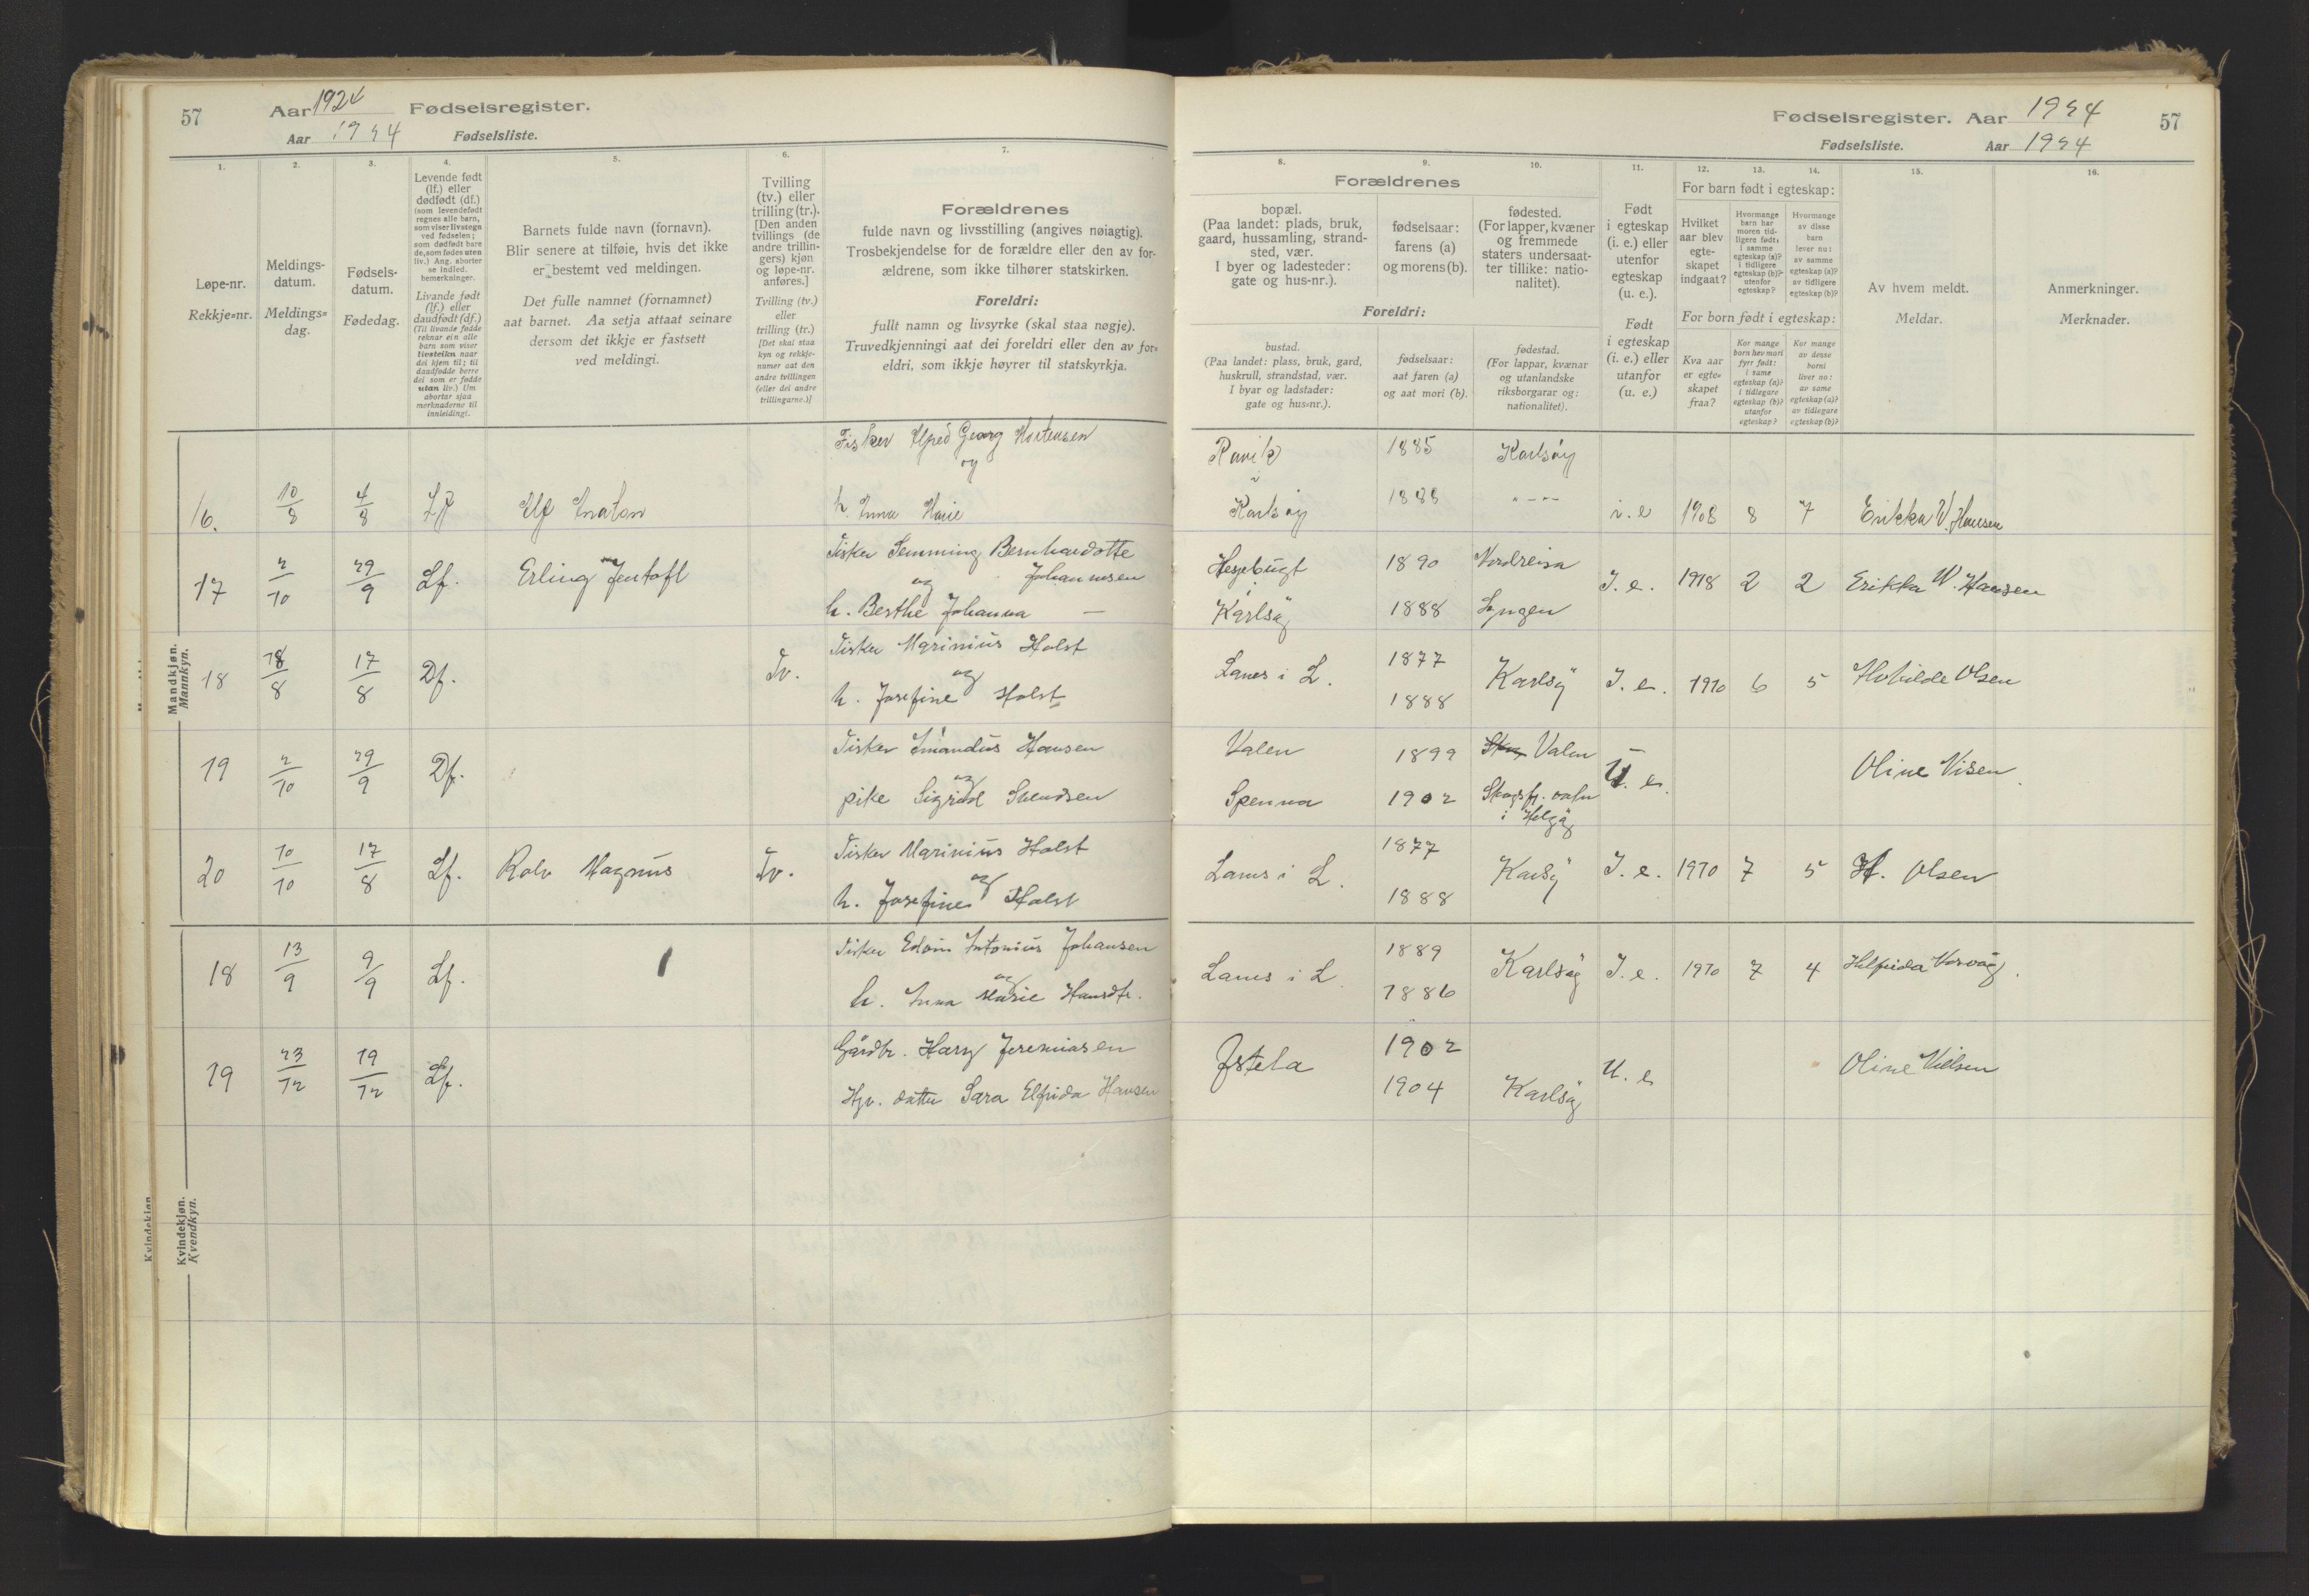 57 Aar 1924 Fødselsregister.
Aar 1924 Fødselsliste.
1.
2.
3.
4.
5.
6.
7.
Løpe-nr.
Rekkje=nr.
Meldings-
datum.
Meldings=
dag.
Fødsels-
datum.
Fødedag.
Levende født
(lf.) eller
dødfødt (df.)
(som levendefødt
regnes alle børn,
som viser livstegn
ved fødselen;
som dødfødt bare
de, som fødes uten
liv.) Ang. aborter
se indled.
bemerkninger.
Livande født
(lf.) eller
daudfødt (df.)
(Til livande fødde
reknar ein alle
barn som viser
livsteikn naar
dei kjem til; til
daudfødde berre
dei som er fødde
utan liv.) Um
abortar sjaa
merknaderne til
innleidingi.
Barnets fulde navn (fornavn).
Blir senere at tilføie, hvis det ikke
er bestemt ved meldingen.
Det fulle namnet (fornamnet)
aat barnet. Aa setja attaat seinare
dersom det ikkje er fastsett
ved meldingi.
Tvilling
(tv.) eller
trilling (tr.).
[Den anden
tvillings (de
andre trillin-
gers) kjøn
og løpe-nr.
anføres.]
Tvilling (tv.)
eller
trilling (tr.)
[Det skal staa
kyn og rekkje-
numer aat den
andre tvillingen
(eller dei andre
trillingarne.)]
Forældrenes
fulde navn og livsstilling (angives nøiagtig).
Trosbekjendelse for de forældre eller den av for-
ældrene, som ikke tilhører statskirken.
Foreldri:
fullt namn og livsyrke (skal staa nøgje).
Truvedkjenningi aat dei foreldri eller den av for=
eldri, som ikkje høyrer til statskyrkja.
Mandkjøn.
Mannkyn.
Fisker Alfred Georg Mortensen
og
16. 10/8 4/8 Lf Alf Anaton h. Anna Marie
Fisker Hemming Bernhardotte
og Johannesen
17 2/10 29/9 Lf. Erling Jentoft h. Berthe Johanna —
Fisker Marinius Holst
og
18 18/8 17/8 Df. Tv. h. Josefine Holst
Fisker Amandus Hansen
og
19 2/10 29/9 Df. pike Sigrid Svendsen
Fisker Marinius Holst
og
20 10/10 17/8 Lf. Rolv Magnus Tv. h. Josefine Holst
Kvindekjøn.
Kvendkyn.
Fisker Edvin Antonius Johansen
og
18 13/9 9/9 Lf. h. Anna Marie Hansdtr.
Gårdbr. Harry Jeremiasen
19 23/12 19/12 Lf. Hjv. datter Sara Elfrida Hansen
Fødselsregister. Aar 1924 57
Fødselsliste. Aar 1924
8.
9.
10.
11.
12.
13.
14.
15.
16.
Forældrenes
bopæl.
(Paa landet: plads, bruk,
gaard, hussamling, strand-
sted, vær.
I byer og ladesteder:
gate og hus-nr.).
fødselsaar:
farens (a)
og morens (b).
fødested.
(For lapper, kvæner
og fremmede
staters undersaat-
ter tillike: natio-
nalitet).
Foreldri:
bustad.
(Paa landet: plass, bruk, gard,
huskrull, strandstad, vær.
I byar og ladstader:
gate og hus=nr.).
fødselsaar:
aat faren (a)
og aat mori (b).
fødestad.
(For lappar, kvænar
og utanlandske
riksborgarar og:
nationalitet).
Født
i egteskap
(i. e.) eller
utenfor
egteskap
(u. e.).
Født
i egteskap
(i. e.) eller
utanfor
(u. e.)
For barn født i egteskap:
Hvilket
aar blev
egte-
skapet
indgaat?
Hvormange
barn har
moren tid-
ligere født:
i samme
egteskap (a)?
i tidligere
egteskap (b)?
utenfor
egteskap?
Hvormange
av disse
barn
lever nu:
av samme
egteskap (a)?
av tidligere
egteskap (b)?
For born født i egteskap:
Kva aar
er egte=
skapet
fraa?
Kor mange
born hev mori
fyrr født:
i same
egteskap (a)?
i tidlegare
egteskap (b)?
utanfor
egteskap?
Kor mange
av desse
borni
liver no:
av same
egteskap (a)?
av tidlegare
egteskap (b)?
Av hvem meldt.
Meldar.
Anmerkninger.
Merknader.
1885 Karlsøy
Karlsøy 1888 " - - - i. e 1908 8 7 Erikka W. Hansen
Hessebugt 1890 Nordreisa
I. e. 1918 2 2 Erikka W. Hansen
Karlsøy 1888 Lyngen
1877
Lanes i L. Karlsö I. e. 1910 6 5 Hobilde Olsen
1888
Valen 1899 Valen
U. e. Oline Nilsen
Spenna 1902
i Helgöy
1877
Lanes i L. Karlsö I. e. 1910 7 5 H. Olsen
1888
1889
Lanes i L. Karlsöy I. e. 1910 7 4
1886
1902
U. e Oline Nielsen
1904 Karlsöy